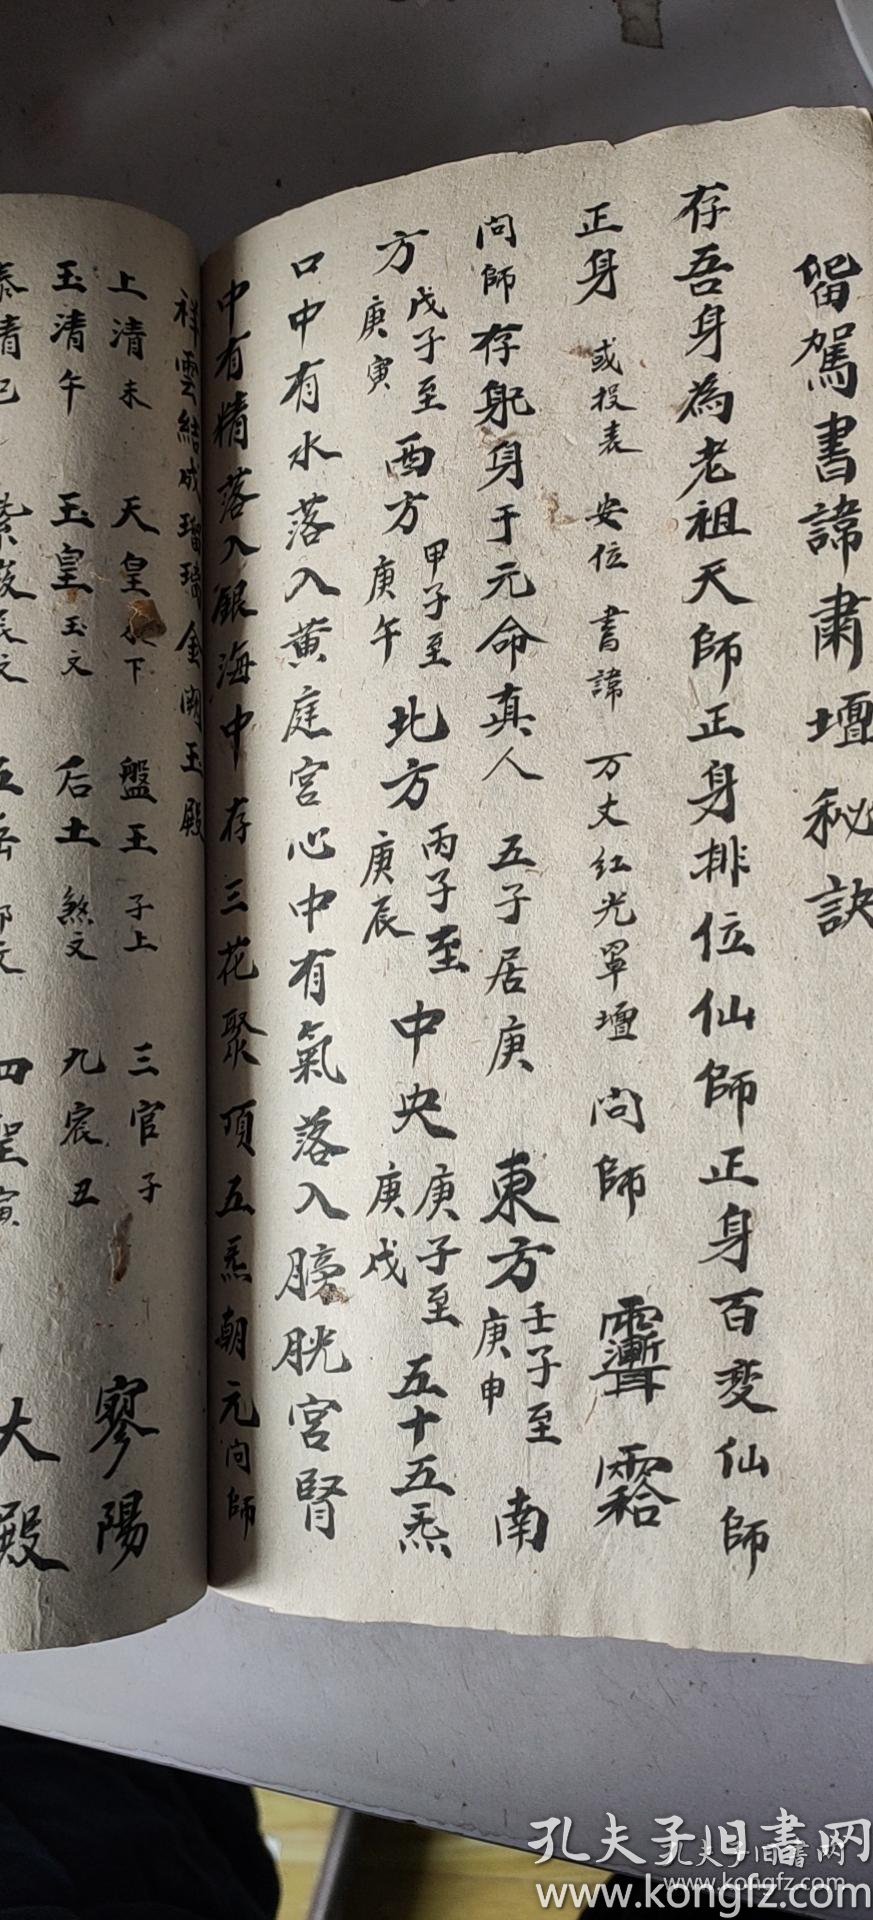 畱駕書諱肅壇秘訣
存吾身為老祖天師正身排位仙師正身百变仙師
正身 或投表 安位 書諱 万丈紅光罩壇 问師
问師存躬身于元命真人 五子居庚 東方 壬子至庚申 南
方 戊子至庚寅 西方 甲子至庚午 北方 丙子至庚辰 中央 庚子至庚戌 五十五炁
口中有水落入黄庭宮心中有氣落入膀胱宮腎
中有精落入銀海中 存三花聚頂五炁朝元 问師
祥雲結成瑠璃金闕玉殿
上清未 天皇 下 盤王 子上 三官子 寥陽
玉清午 玉皇 玉文 后土 煞文 九宸丑 大殿
泰清巳 紫微 五岳 四聖寅
孔夫子旧書网
www.kongfz.com
孔夫子旧書网
www.kongfz.com